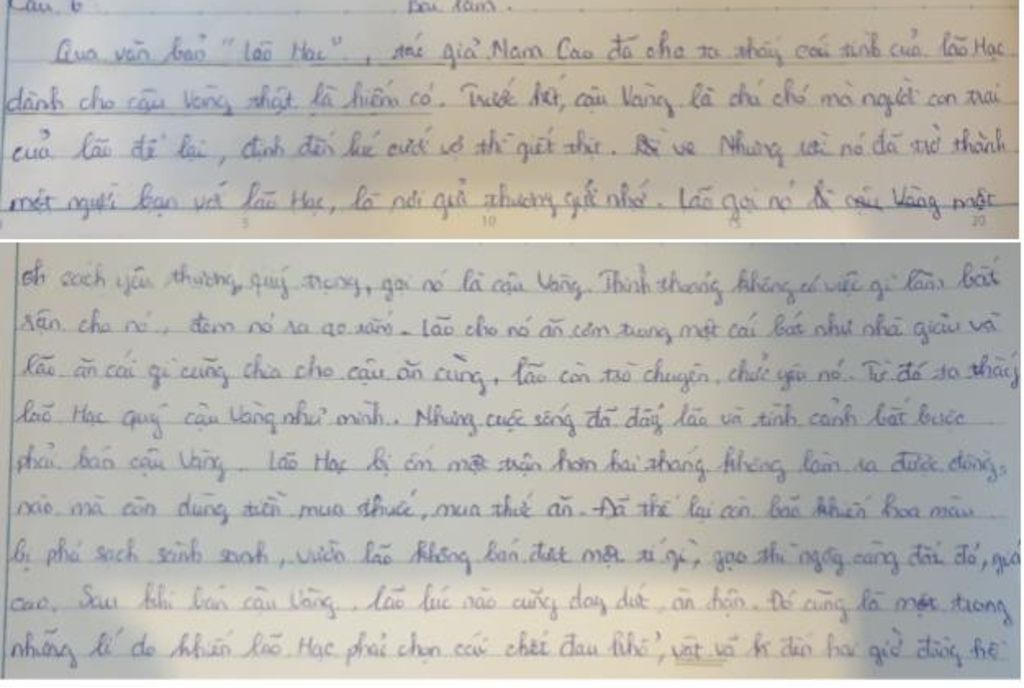 Câu 6 Bài làm.
Qua văn bản "Lão Hạc", tác giả Nam Cao đã cho ta thấy cái tình của lão Hạc
dành cho cậu Vàng thật là hiếm có. Trước hết, cậu Vàng là chú chó mà người con trai
của lão để lại, định đến lúc cưới vợ thì giết thịt. Nhưng rồi nó đã trở thành
một người bạn với lão Hạc, là nơi giả thương giả nhớ. Lão gọi nó là cậu Vàng một
ch cách yêu thương, quý trọng, gọi nó là cậu Vàng. Thỉnh thoảng không có việc gì làm, bắt
rận cho nó, đem nó ra ao tắm. Lão cho nó ăn cơm trong một cái bát như nhà giàu và
lão ăn cái gì cũng chia cho cậu ăn cùng, lão còn trò chuyện, chửi yêu nó. Từ đó ta thấy
lão Hạc quý cậu Vàng như mình. Nhưng cuộc sống đã đẩy lão và tình cảnh bắt buộc
phải bán cậu Vàng. Lão Hạc bị ốm một trận hơn hai tháng không làm ra được đồng
nào mà còn dùng tiền mua thuốc, mua thức ăn. Đã thế lại còn bão khiến hoa màu
bị phá sạch sành sanh, vườn lão không bán được một tí gì, gạo thì ngày càng đắt đỏ, giá
cao. Sau khi bán cậu Vàng, lão lúc nào cũng day dứt, ân hận. Đó cũng là một trong
những lí do khiến lão Hạc phải chọn cái chết đau khổ, vật vã đến hai giờ đồng hồ